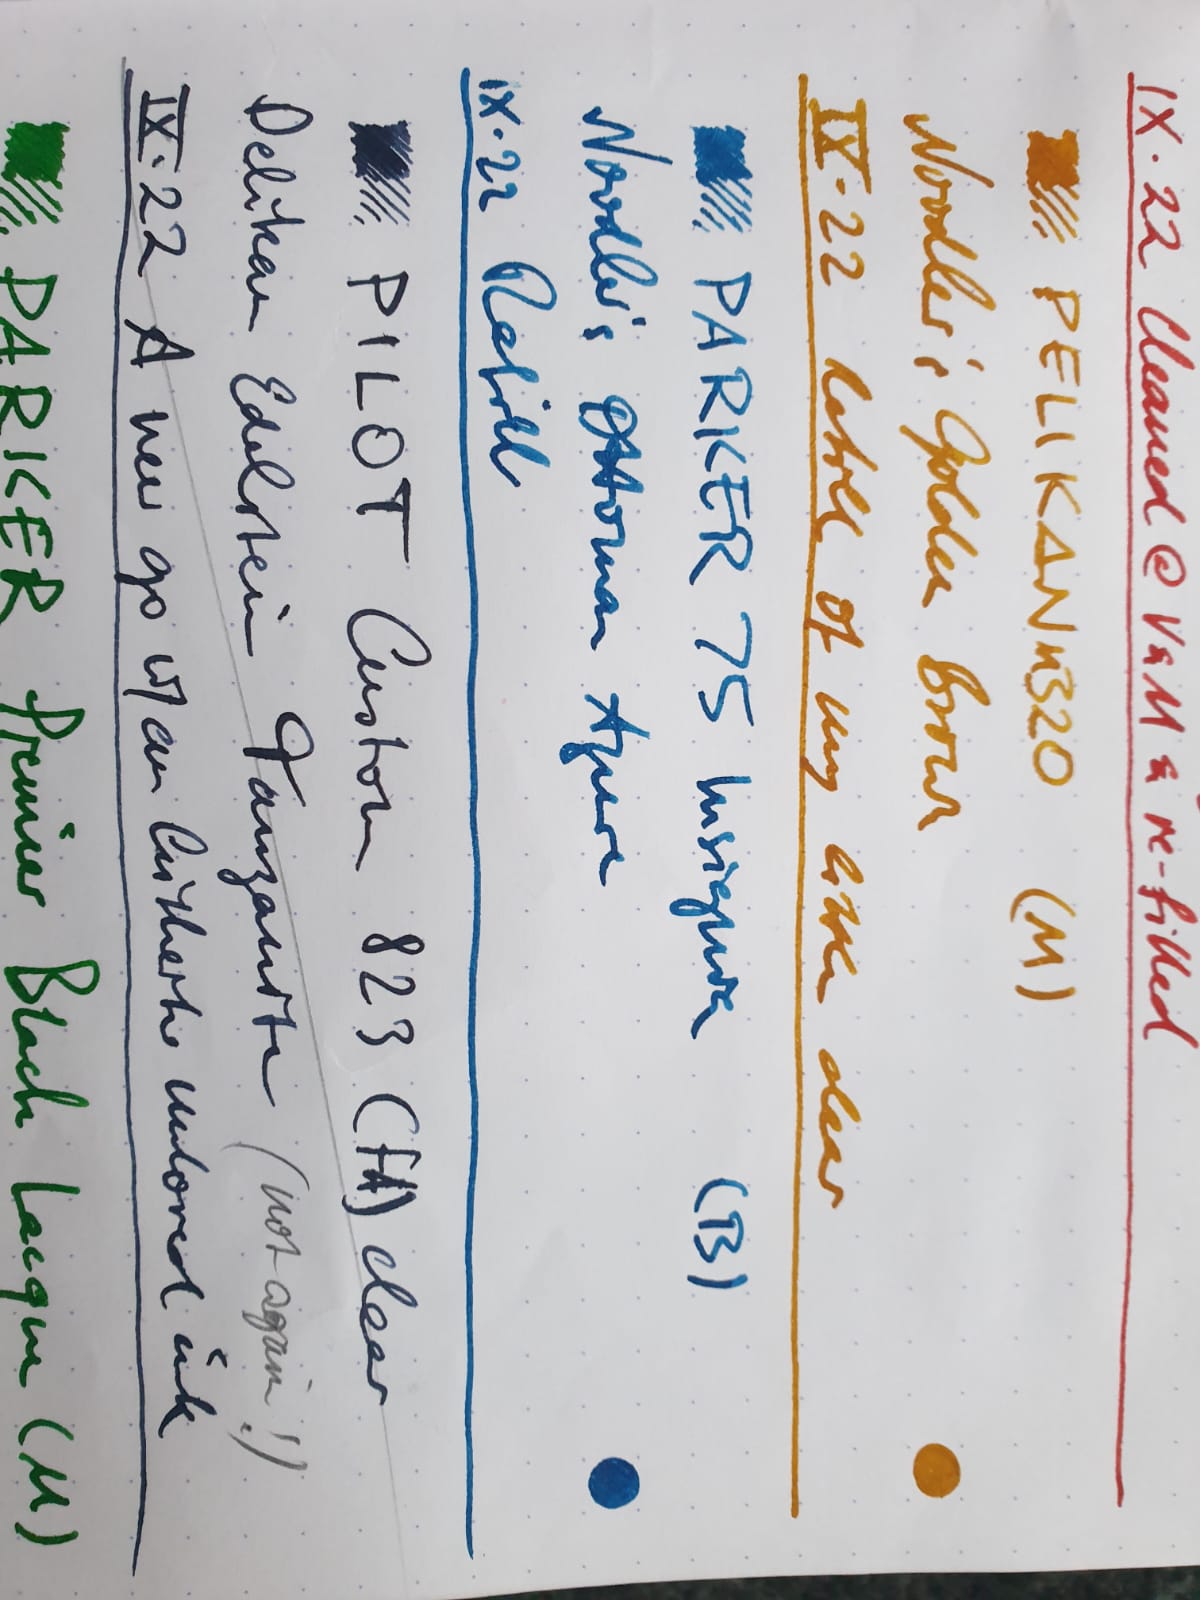 IX·22 Cleaned @ V&M & re-filled
PELIKAN M320 (M)
Noodler's Golden Brown
IX·22 Refill of my little dear
PARKER 75 Insignia (B)
Noodler's Ottoman Azure
IX·22 Refill
PILOT Custom 823 (FA) clear
Pelikan Edelstein Tanzanite (not again!)
IX·22 A new go w/an hitherto unloved ink
PARKER Premier Black Lacque (M)